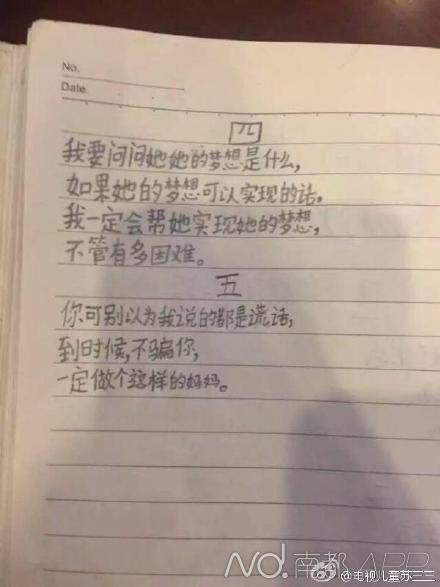 No.
Date.
四
我要问问她她的梦想是什么,
如果她的梦想可以实现的话,
我一定会帮她实现她的梦想,
不管有多困难。
五
你可别以为我说的都是谎话,
到时候,不骗你,
一定做个这样的妈妈。
ND.南都APP
@电视儿童苏三三